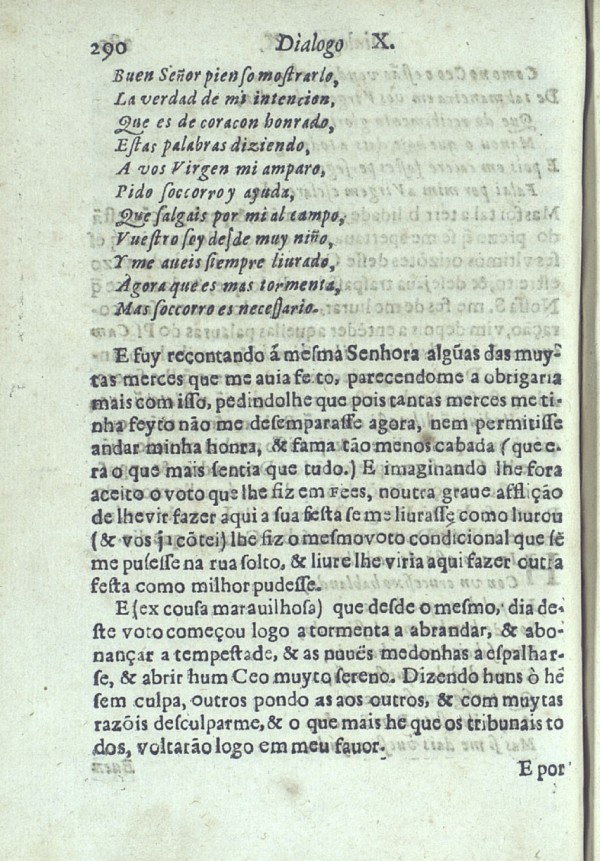 290 Dialogo X.
Buen Señor pienso mostrarlo,
La verdad de mi intencion,
Que es de coracon honrado,
Estas palabras diziendo,
A vos Virgen mi amparo,
Pido soccorro y ayuda,
Que salgais por mi al campo,
Vuestro soy desde muy niño,
Y me aueis siempre liurado,
Agora que es mas tormenta,
Mas soccorro es necessario.
E fuy recontando á mesma Senhora algũas das muy-
tas merces que me auia feito, parecendome a obrigaria
mais com isso, pedindolhe que pois tantas merces me ti-
nha feyto não me desemparasse agora, nem permitisse
andar minha honra, & fama tão menos cabada (que e-
ra o que mais sentia que tudo.) E imaginando lhe fora
aceito o voto que lhe fiz em Fees, noutra graue aflição
de lhe vir fazer aqui a sua festa se me liurasse como liurou
(& vos ja cõtei) lhe fiz o mesmo voto condicional que sẽ
me pusesse na rua solto, & liure lhe viria aqui fazer outra
festa como milhor pudesse.
E (ex cousa marauilhosa) que desde o mesmo, dia de-
ste voto começou logo a tormenta a abrandar, & abo-
nançar a tempestade, & as nuuẽs medonhas a espalhar-
se, & abrir hum Ceo muyto sereno. Dizendo huns ò hẽ
sem culpa, outros pondo as aos outros, & com muytas
razõis desculparme, & o que mais he que os tribunais to
dos, voltarão logo em meu fauor.
E por